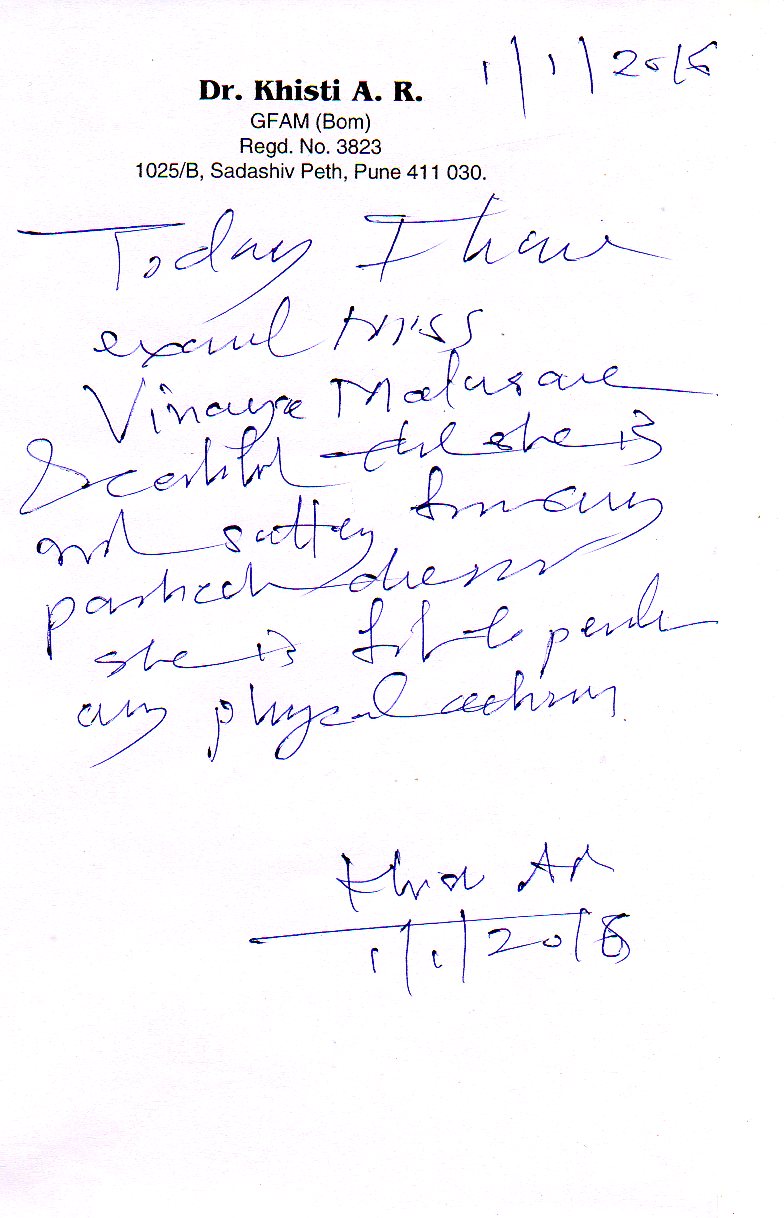 1/1/2018
Dr. Khisti A. R.
GFAM (Bom)
Regd. No. 3823
1025/B, Sadashiv Peth, Pune 411 030.
Today I have
Miss
Vinaya Malusare
& she is
not from any
she is fit to
any physical
Khisti AR
1/1/2018